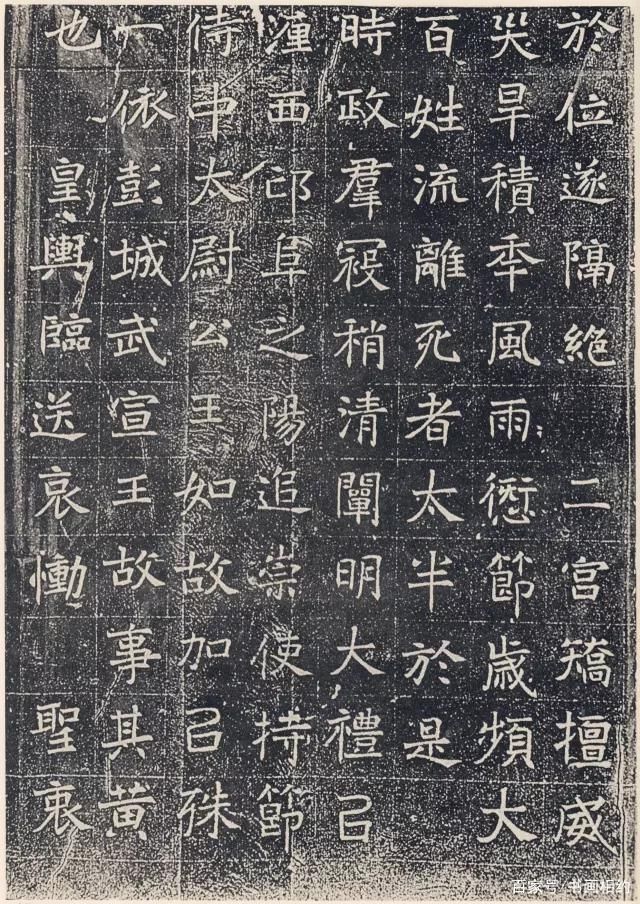 於位遂隔絕　二宮矯擅威
災旱積秊風雨愆節歲頻大
百姓流離死者太半於是
時政羣寇稍清闡明大禮㠯
瀍西邙阜之陽追崇使持節
侍中太尉公王如故加㠯殊
一依彭城武宣王故事其黃
也　皇輿臨送哀慟　聖衷
百家号/书画相约